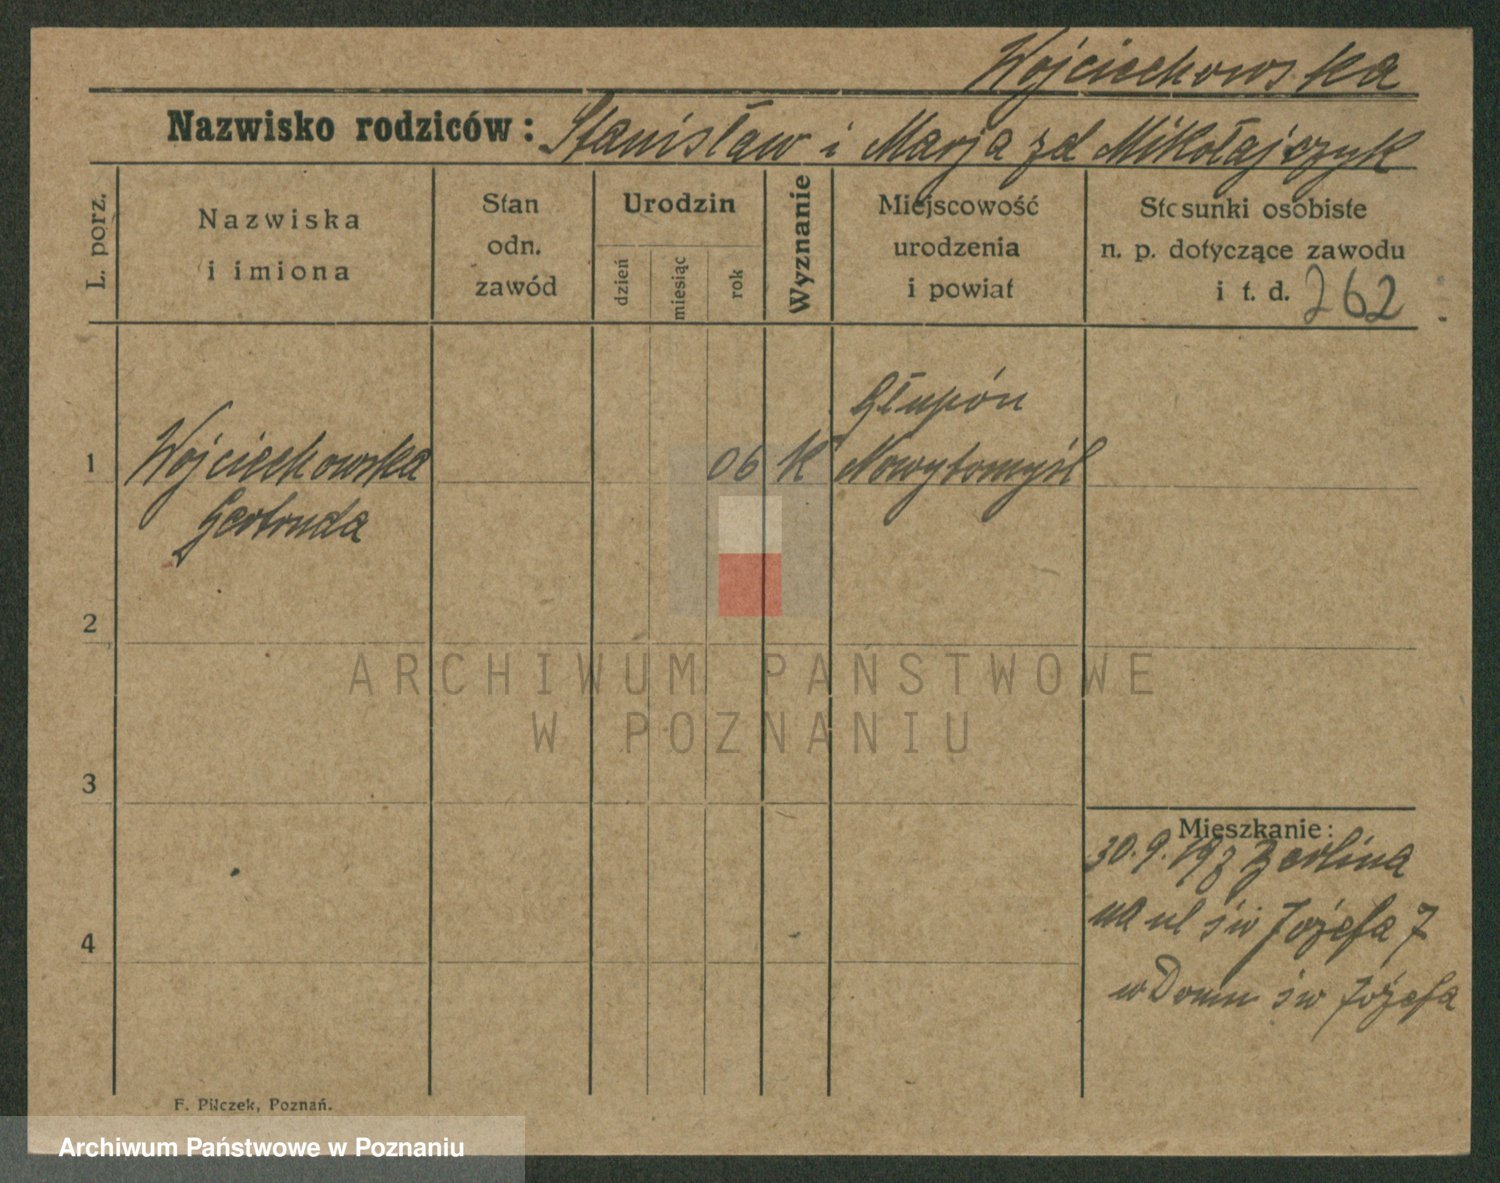 Wojciechowska
Nazwisko rodziców: Stanisław i Marja zd Mikołajczyk
L. porz.
Nazwiska
i imiona
Stan
odn.
zawód
Urodzin
dzień
miesiąc
rok
Wyznanie
Miejscowość
urodzenia
i powiat
Stosunki osobiste
n. p. dotyczące zawodu
i t. d. 262
Głupón
1 Wojciechowska 06 K Nowytomyśl
Gertruda
2
ARCHIWUM PAŃSTWOWE
W POZNANIU
3
Mieszkanie:
30.9.19 z Berlina
4
na ul św Józefa 7
w Domu św Józefa
F. Pilczek, Poznań.
Archiwum Państwowe w Poznaniu